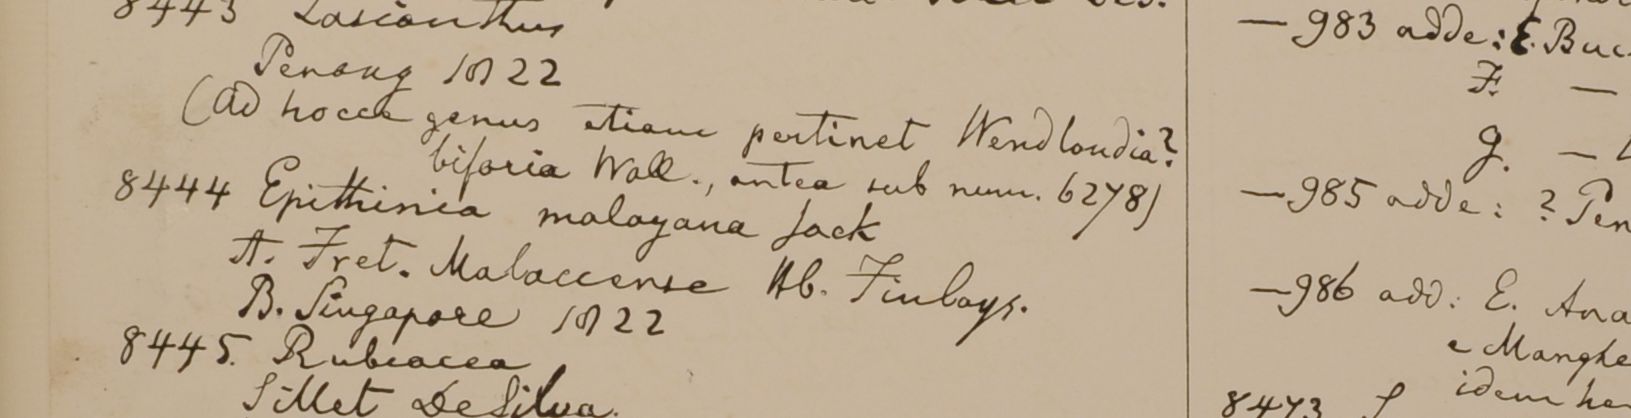 8443 Lasianthus
Penang 1822
(Ad hocce genus etiam pertinet Wendlandia?
bifaria Wall., antea sub num. 6278)
8444 Epithinia malayana Jack
A. Fret. Malaccense Hb. Finlays.
B. Singapore 1822
8445. Rubiacea
Sillet De Silva.
— 983 adde: E. Buc
F. —
G. —
— 985 adde: ? Pen
— 986 add: E. Ava
e Manghe
idem
8473